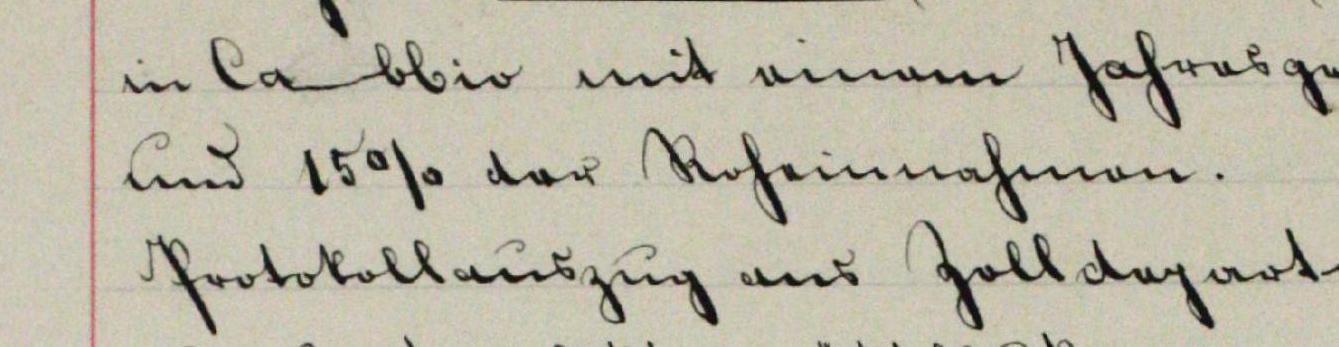 in Cabbio mit einem Jahresge
und 15% der Roheinnahmen.
Protokollauszug ans Zolldepart-